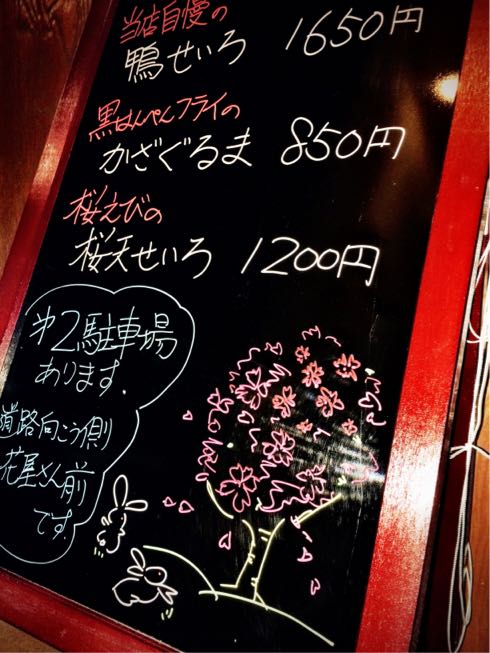 当店自慢の
鴨せいろ 1650円
黒はんぺんフライの
かざぐるま 850円
桜えびの
桜天せいろ 1200円
第2駐車場
あります。
道路向こう側
花屋さん前
です。